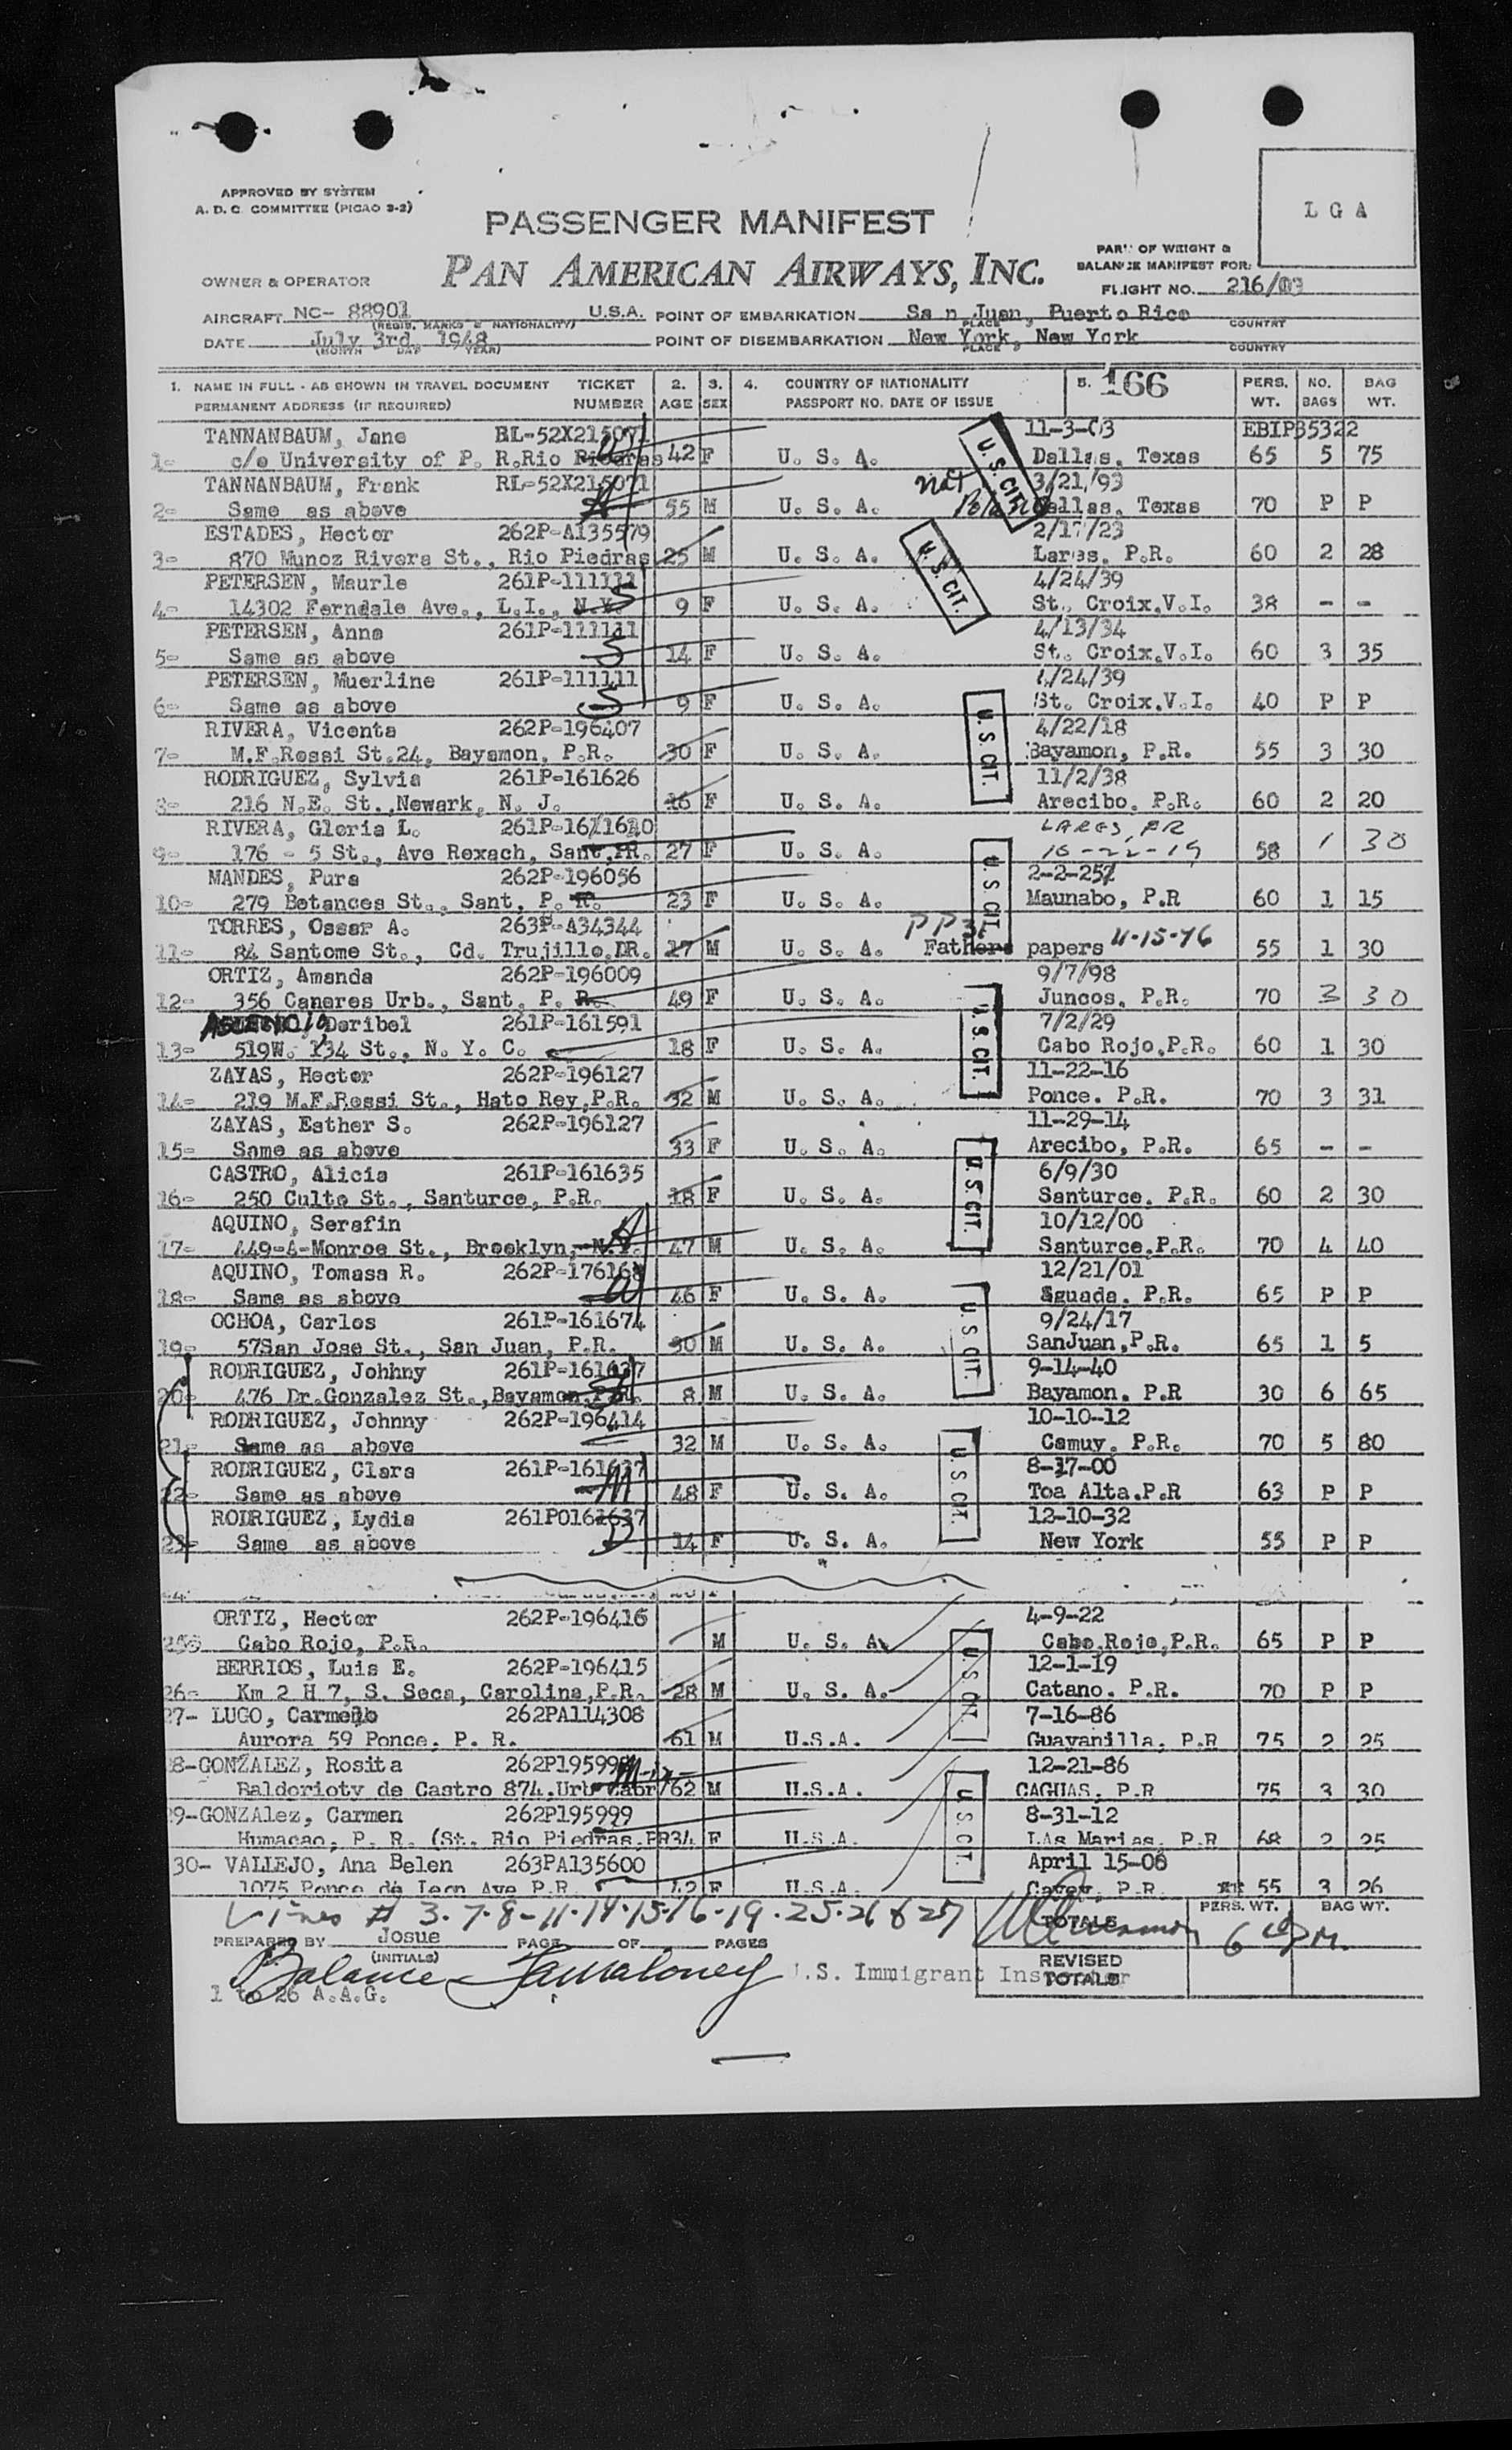 APPROVED BY SYSTEM
A. D. C. COMMITTEE (PICAO 3-2)
L G A
PASSENGER MANIFEST
PART OF WEIGHT &
BALANCE MANIFEST FOR:
OWNER & OPERATOR
PAN AMERICAN AIRWAYS, INC.
FLIGHT NO. 216/03
AIRCRAFT NC- 88901 U.S.A. POINT OF EMBARKATION Sa n Juan, Puerto Rico
(REGIS. MARKS & NATIONALITY) PLACE COUNTRY
DATE July 3rd, 1948 POINT OF DISEMBARKATION New York, New York
(MONTH DAY YEAR) PLACE COUNTRY
1. NAME IN FULL - AS SHOWN IN TRAVEL DOCUMENT TICKET 2. 3. 4. COUNTRY OF NATIONALITY 5. 166 PERS. NO. BAG
PERMANENT ADDRESS (IF REQUIRED) NUMBER AGE SEX PASSPORT NO. DATE OF ISSUE WT. BAGS WT.
TANNANBAUM, Jane RL-52X215071 11-3-03 EBIP35322
1- c/o University of P. R.Rio Piedras 42 F U. S. A. U. S. CIT. Dallas, Texas 65 5 75
TANNANBAUM, Frank RL-52X215071 nat 3/21/93
2- Same as above 55 M U. S. A. Dallas, Texas 70 P P
ESTADES, Hector 262P-A135579 2/17/23
3- 870 Munoz Rivera St., Rio Piedras 25 M U. S. A. U. S. CIT. Lares, P.R. 60 2 28
PETERSEN, Maurle 261P-111111 4/24/39
4- 14302 Ferndale Ave., L.I., N.Y. 9 F U. S. A. St. Croix.V.I. 38 - -
PETERSEN, Anna 261P-111111 4/13/34
5- Same as above 14 F U. S. A. St. Croix.V.I. 60 3 35
PETERSEN, Muerline 261P-111111 4/24/39
6- Same as above 9 F U. S. A. St. Croix.V.I. 40 P P
RIVERA, Vicenta 262P-196407 4/22/18
7- M.F.Rossi St.24, Bayamon, P.R. 30 F U. S. A. U. S. CIT. Bayamon, P.R. 55 3 30
RODRIGUEZ, Sylvia 261P-161626 11/2/38
8- 216 N.E. St.,Newark, N. J. 16 F U. S. A. Arecibo. P.R. 60 2 20
RIVERA, Gloria L. LARES, PR
9- 176 - 5 St., Ave Rexach, Sant,PR. 27 F U. S. A. 10-22-19 58 1 30
MANDES, Pura 262P-196056 2-2-25
10- 279 Betances St., Sant, P. R. 23 F U. S. A. U. S. CIT. Maunabo, P.R 60 1 15
TORRES, Oscar A. 263P-A34344
11- 84 Santome St., Cd. Trujillo,DR. 17 M U. S. A. Fathers papers 55 1 30
ORTIZ, Amanda 262P-196009 9/7/98
12- 356 Caneres Urb., Sant, P. R. 49 F U. S. A. Juncos, P.R. 70 3 30
Deribel 261P-161591 7/2/29
13- 519W. 134 St., N. Y. C. 18 F U. S. A. U. S. CIT. Cabo Rojo,P.R. 60 1 30
ZAYAS, Hector 262P-196127 11-22-16
14- 219 M.F.Rossi St., Hato Rey,P.R. 32 M U. S. A. Ponce. P.R. 70 3 31
ZAYAS, Esther S. 262P-196127 11-29-14
15- Same as above 33 F U. S. A. Arecibo, P.R. 65 - -
CASTRO, Alicia 261P-161635 6/9/30
16- 250 Culto St., Santurce, P.R. 18 F U. S. A. U. S. CIT. Santurce. P.R. 60 2 30
AQUINO, Serafin 10/12/00
17- 449-A-Monroe St., Brooklyn, N.Y. 47 M U. S. A. Santurce,P.R. 70 4 40
AQUINO, Tomasa R. 262P-176168 12/21/01
18- Same as above 46 F U. S. A. Aguada, P.R. 65 P P
OCHOA, Carlos 261P-161674 9/24/17
19- 57San Jose St., San Juan, P.R. 30 M U. S. A. U. S. CIT. SanJuan,P.R. 65 1 5
RODRIGUEZ, Johhny 261P-161637 9-14-40
20- 476 Dr.Gonzalez St.,Bayamon,P.R. 8 M U. S. A. Bayamon. P.R 30 6 65
RODRIGUEZ, Johnny 262P-196414 10-10-12
21- Same as above 32 M U. S. A. Camuy. P.R. 70 5 80
RODRIGUEZ, Clara 261P-161637 8-17-00
22- Same as above 48 F U. S. A. U. S. CIT. Toa Alta.P.R 63 P P
RODRIGUEZ, Lydia 261P0161637 12-10-32
23- Same as above 14 F U. S. A. New York 55 P P
ORTIZ, Hector 262P-196416 4-9-22
25- Cabo Rojo, P.R. M U. S. A. Cabo Rojo,P.R. 65 P P
BERRIOS, Luis E. 262P-196415 12-1-19
26- Km 2 H 7, S. Seca, Carolina,P.R. 28 M U. S. A. U. S. CIT. Catano. P.R. 70 P P
27- LUGO, Carmelo 262PA114308 7-16-86
Aurora 59 Ponce. P. R. 61 M U.S.A. Guayanilla, P.R 75 2 25
8-GONZALEZ, Rosita 12-21-86
Baldorioty de Castro 874.Urb 62 M U.S.A. CAGUAS, P.R 75 3 30
9-GONZAlez, Carmen 262P195999 8-31-12
Humacao, P. R. (St. Rio Piedras.PR 34 F U.S.A. U. S. CIT. LAs Marias. P.R 68 2 25
30- VALLEJO, Ana Belen 263PA135600 April 15-06
1075 Ponce de Leon Ave P.R. 42 F U.S.A. Cayey, P.R 55 3 26
Lines # 3-7-8-11-14-15-16-19-25-26 & 27 TOTALS PERS. WT. BAG WT.
PREPARED BY Josue PAGE OF PAGES
(INITIALS) REVISED
Balance U.S. Immigrant Inspector TOTALS
1 to 26 A.A.G.